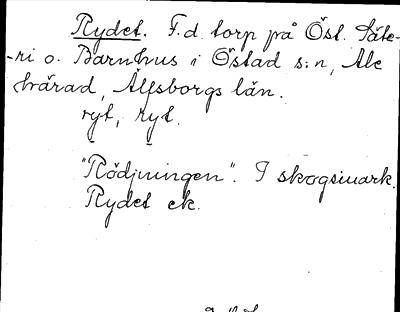 Rydet. F.d. torp på Öst. Säte-
-ri o. Barnhus i Östad s:n, Ale
härad, Älfsborgs län.
ryt, ryt.
"Rödjningen". I skogsmark.
Rydet ek.